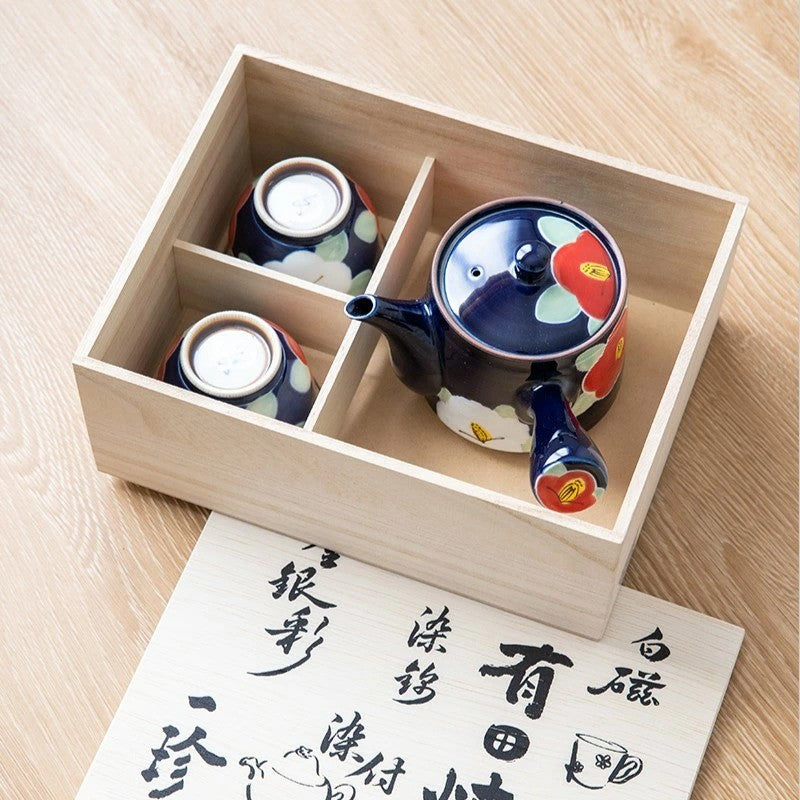 白磁
有田焼
染錦
染付
銀彩
一珍